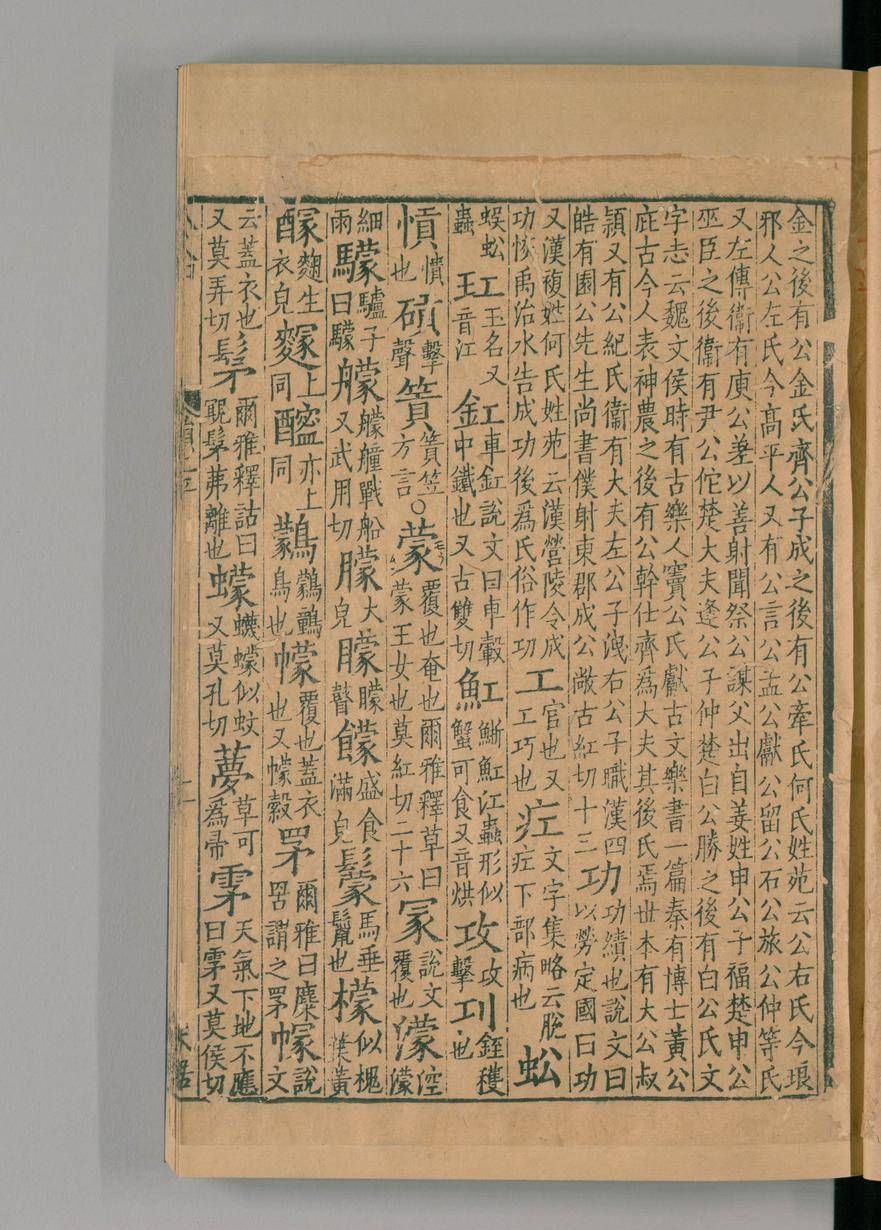 金之後有公金氏齊公子成之後有公牽氏何氏姓苑云公右氏今琅
邪人公左氏今高平人又有公言公孟公獻公留公石公旅公仲等氏
又左傳衞有庾公差以善射聞祭公謀父出自姜姓申公子福楚申公
巫臣之後衞有尹公佗楚大夫逢公子仲楚白公勝之後有白公氏文
字志云魏文侯時有古樂人竇公氏獻古文樂書一篇秦有博士黃公
庛古今人表神農之後有公幹仕齊爲大夫其後氏焉世本有大公叔
頴又有公紀氏衞有大夫左公子洩右公子職漢四皓有園公先生尚書僕射東郡成公敞古紅切十三功功績也說文曰以勞定國曰功
又漢複姓何氏姓苑云漢營陵令成功恢禹治水告成功後爲氏俗作功工官也又工巧也疘文字集略云脫疘下部病也蚣
蜈蚣蟲玒玉名又音江釭車釭說文曰車轂中鐵也又古雙切魟魟江蟲形似蟹可食又音烘攻攻擊㓚銍穫也
愩憒也碽擊聲篢篢笠方言○蒙覆也奄也爾雅釋草曰蒙王女也莫紅切二十六冡說文覆也濛涳濛
細雨驢子曰艨艨艟戰船又武用切朦大皃矇朦瞽饛盛食滿皃馬垂鬣也檬似槐葉黃
麴生衣皃上同亦上同鸏鳥也幪覆也蓋衣也又幪縠罞爾雅曰麋罟謂之罞幏說文
云蓋衣也又莫弄切髳爾雅釋詁曰覭髳茀離也蠓蠛蠓似蚊又莫孔切夢草可爲帚雺天氣下地不應曰雺又莫侯切